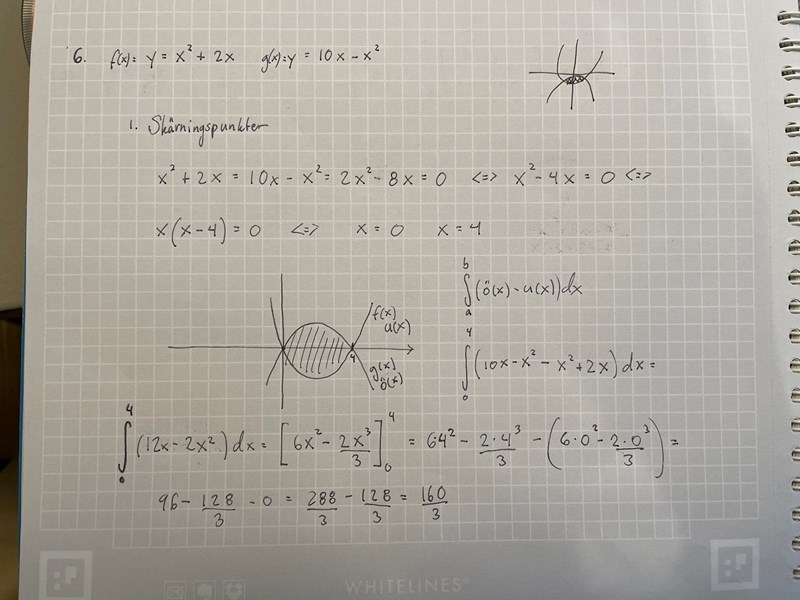 6. f(x)= y = x² + 2x g(x)=y = 10x - x²
1. Skärningspunkter
x² + 2x = 10x - x² = 2x² - 8x = 0 <=> x² - 4x = 0 <=>
x(x-4) = 0 <=> x = 0 x = 4
∫ₐᵇ (ö(x) - u(x))dx
f(x)
u(x)
4
g(x)
ö(x)
∫₀⁴ (10x - x² - x² + 2x) dx =
∫₀⁴ (12x - 2x²) dx = [6x² - 2x³/3]₀⁴ = 6·4² - 2·4³/3 - (6·0² - 2·0³/3) =
96 - 128/3 - 0 = 288/3 - 128/3 = 160/3
WHITELINES®